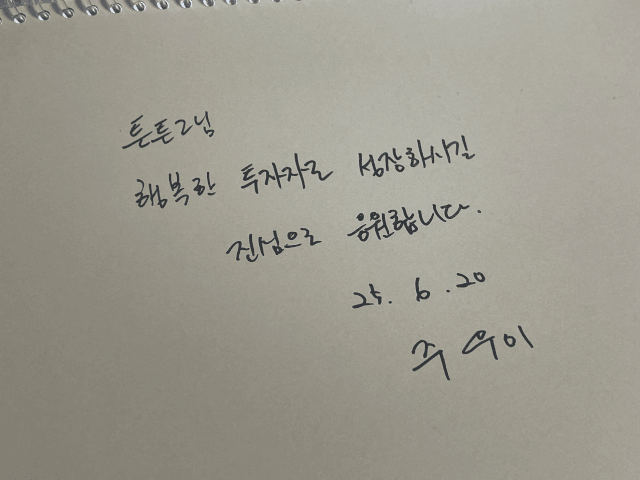 튼튼2님
행복한 투자자로 성장하시길
진심으로 응원합니다.
25. 6. 20
주우이